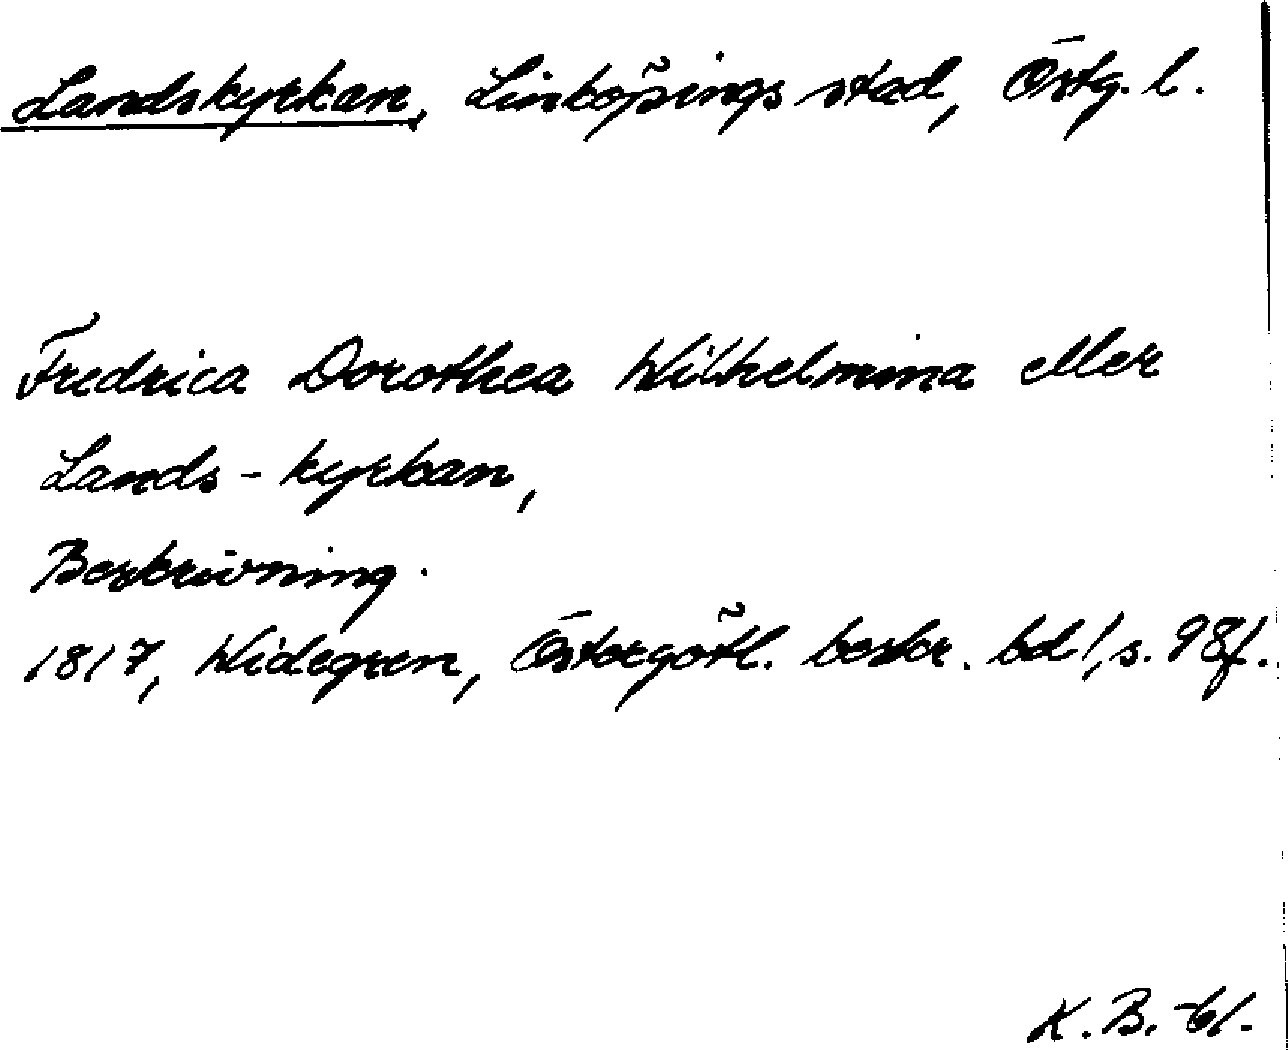 Landskyrkan, Linköpings stad, Östg. l.
Fredrica Dorothea Wilhelmina eller
Lands-kyrkan,
Beskrivning.
1817, Widegren, Östergötl. beskr. bd 1, s. 98f.
K.B. -61.